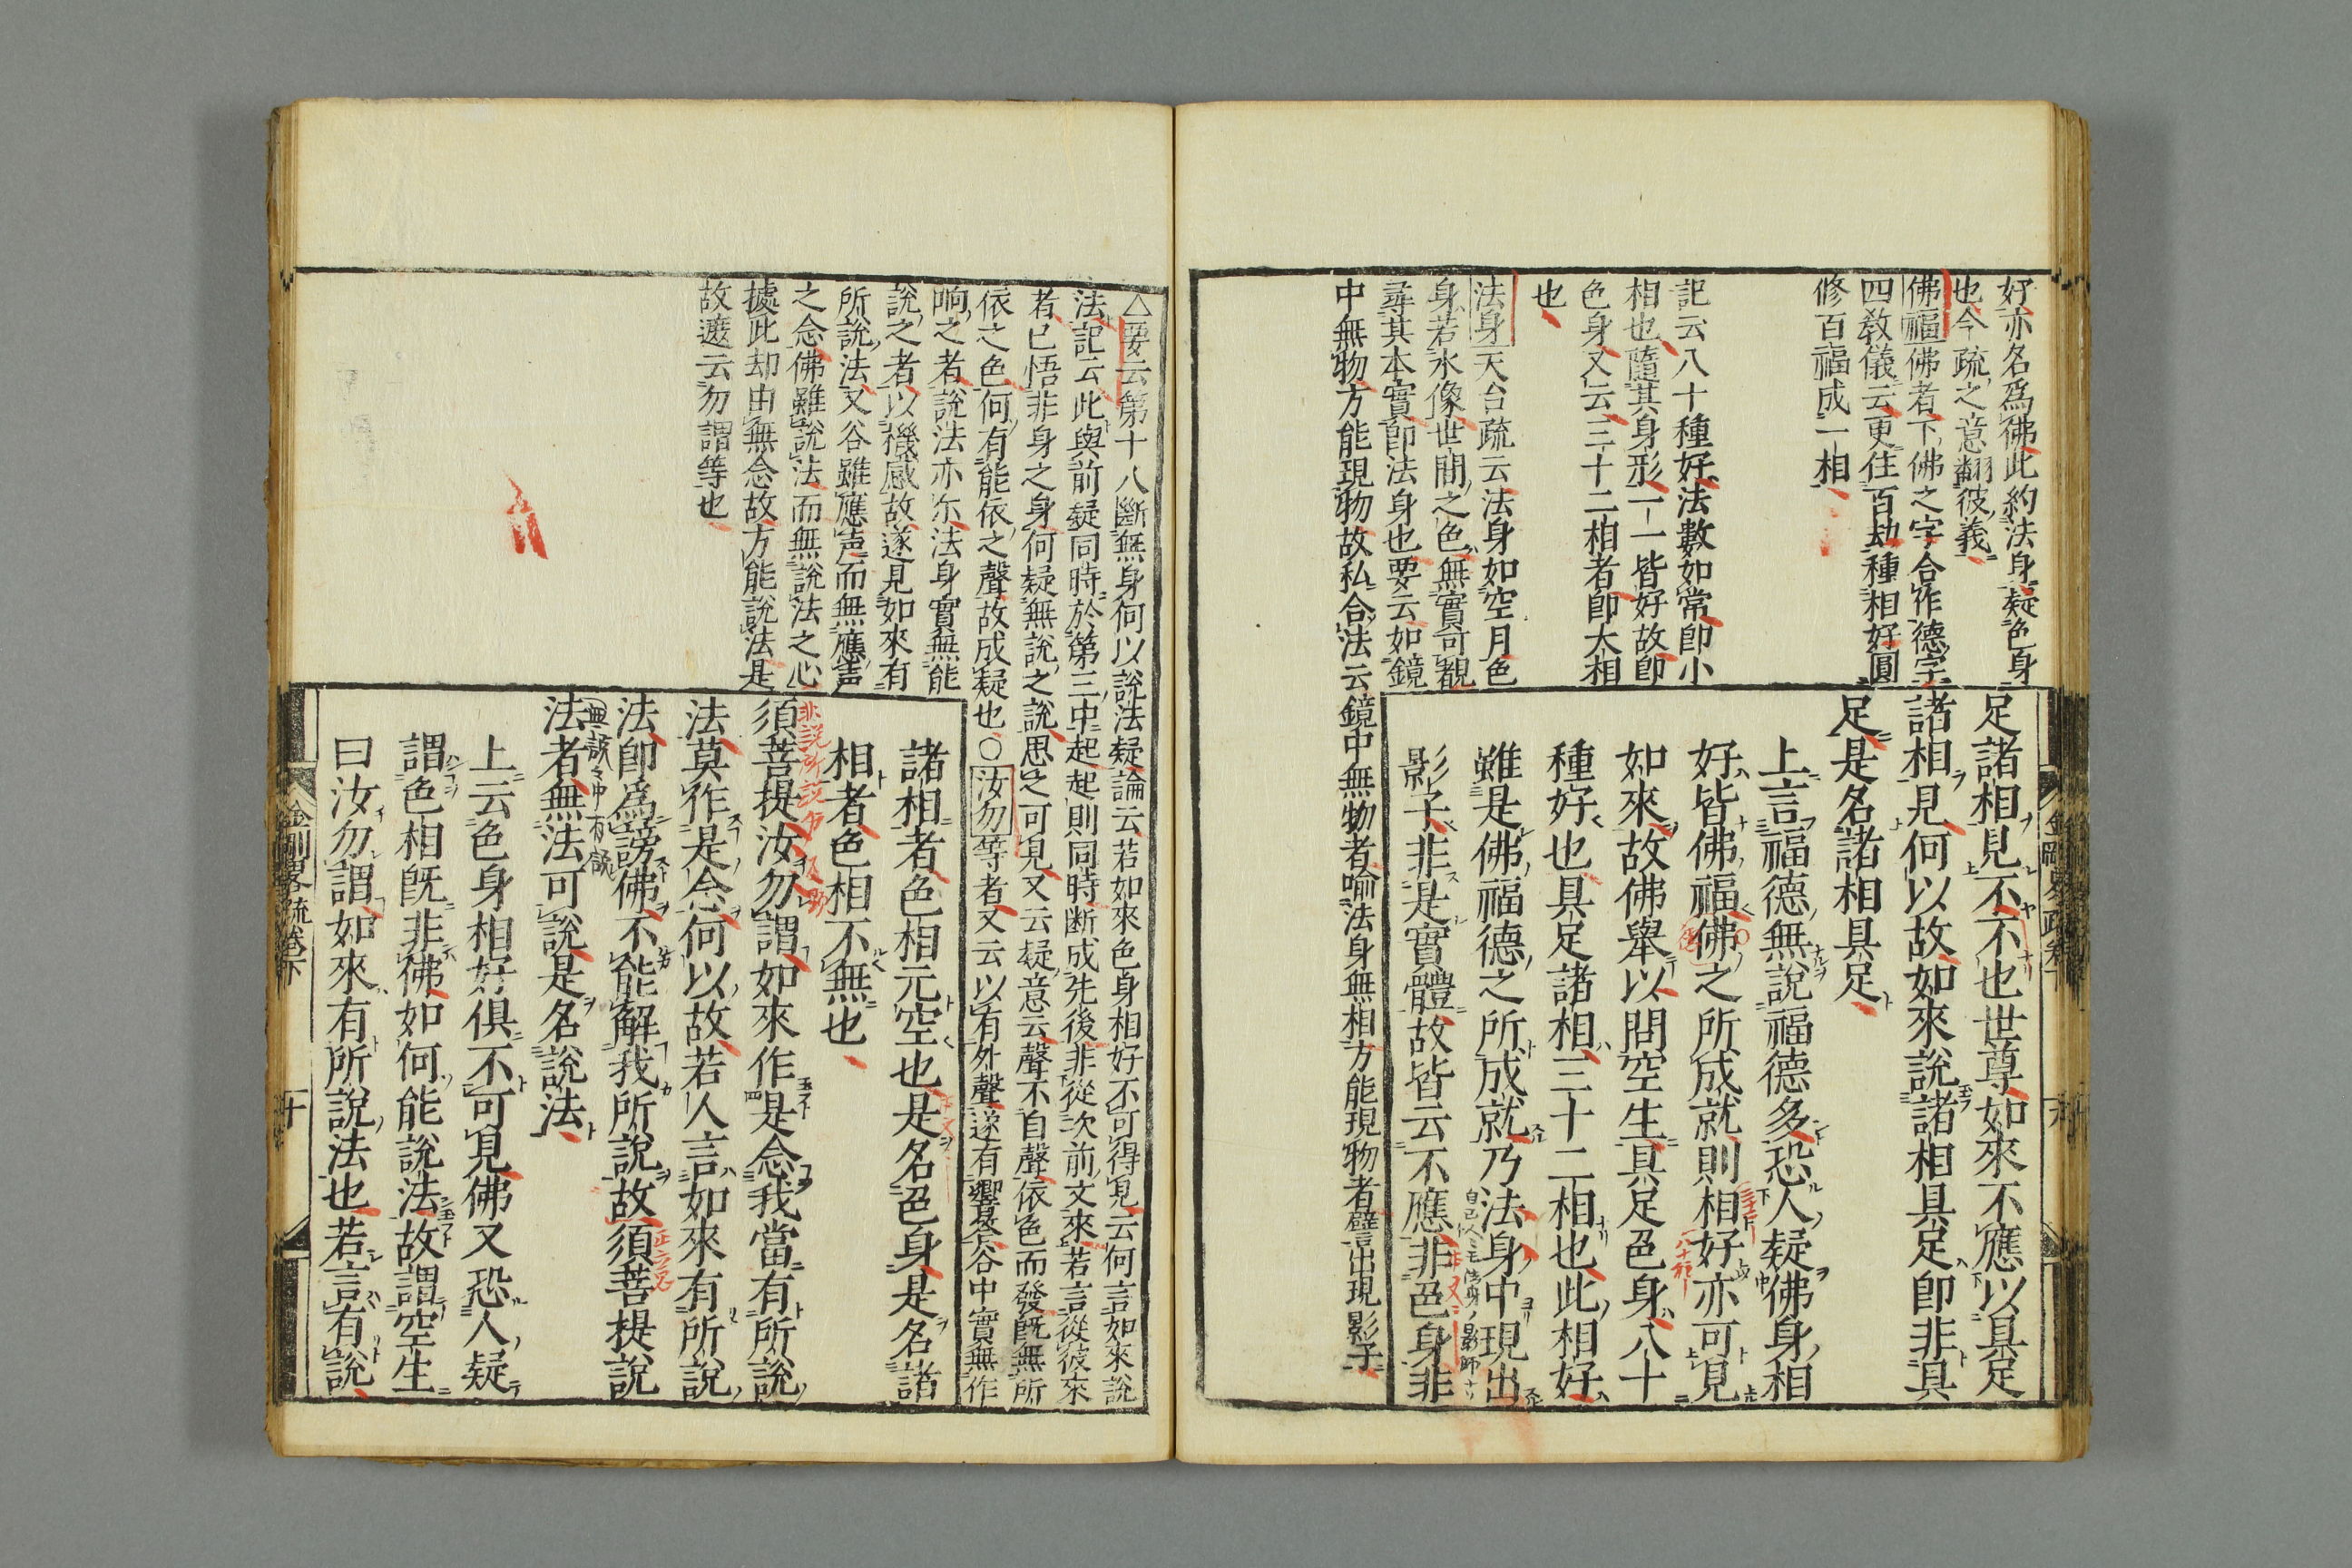 好亦名爲佛此約法身疑色身
也今疏之意翻彼義
佛福佛者下佛之字合作德字
四敎儀云更住百劫種相好圓
修百福成一相
記云八十種好法數如常卽小
相也隨其身形一一皆好故卽
色身又云三十二相者卽大相
也
法身天台疏云法身如空月色
身若水像世間之色無實可觀
尋其本實卽法身也要云如鏡
中無物方能現物故私合法云鏡中無物者喻法身無相方能現物者譬出現影子
足諸相見不不也世尊如來不應以具足
諸相見何以故如來說諸相具足卽非具
足是名諸相具足
上言福德無說福德多恐人疑佛身相
好皆佛福佛之所成就則相好亦可見
如來故佛舉以問空生具足色身八十
種好也具足諸相三十二相也此相好
雖是佛福德之所成就乃法身中現出
影子非是實體故皆云不應非色身非
金剛畧疏卷下
△要云第十八斷無身何以說法疑論云若如來色身相好不可得見云何言如來說
法記云此與前疑同時於第三中起起則同時斷成先後非從次前文來若言從彼來
者已悟非身之身何疑無說之說思之可見又云疑意云聲不自聲依色而發旣無所
依之色何有能依之聲故成疑也○汝勿等者又云以有外聲遂有響answer谷中實無作
响之者說法亦尒法身實無能
說之者以機感故遂見如來有
所說法又谷雖應声而無應声
之念佛雖說法而無說法之心
據此却由無念故方能說法是
故遮云勿謂等也
諸相者色相元空也是名色身是名諸
相者色相不無也
須菩提汝勿謂如來作是念我當有所說
法莫作是念何以故若人言如來有所說
法卽爲謗佛不能解我所說故須菩提說
法者無法可說是名說法
上云色身相好俱不可見佛又恐人疑
謂色相旣非佛如何能說法故謂空生
曰汝勿謂如來有所說法也若言有說
金剛畧疏卷下
十